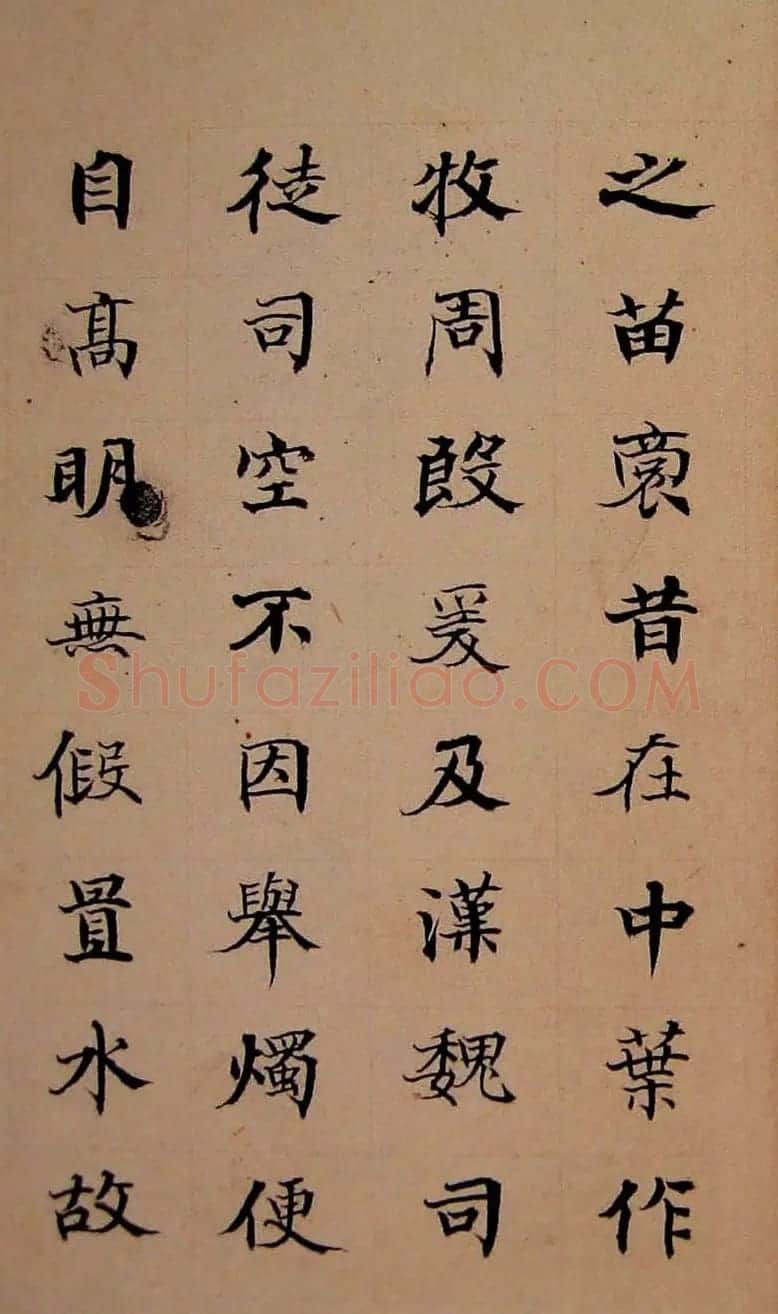 之苗裔昔在中葉作
牧周殷爰及漢魏司
徒司空不因舉燭便
自髙明無假置水故
Shufaziliao.COM